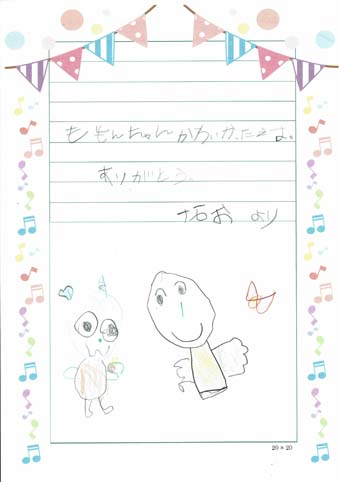 ももんちゃんかわいかったよ。
ありがとう。
より
20×20